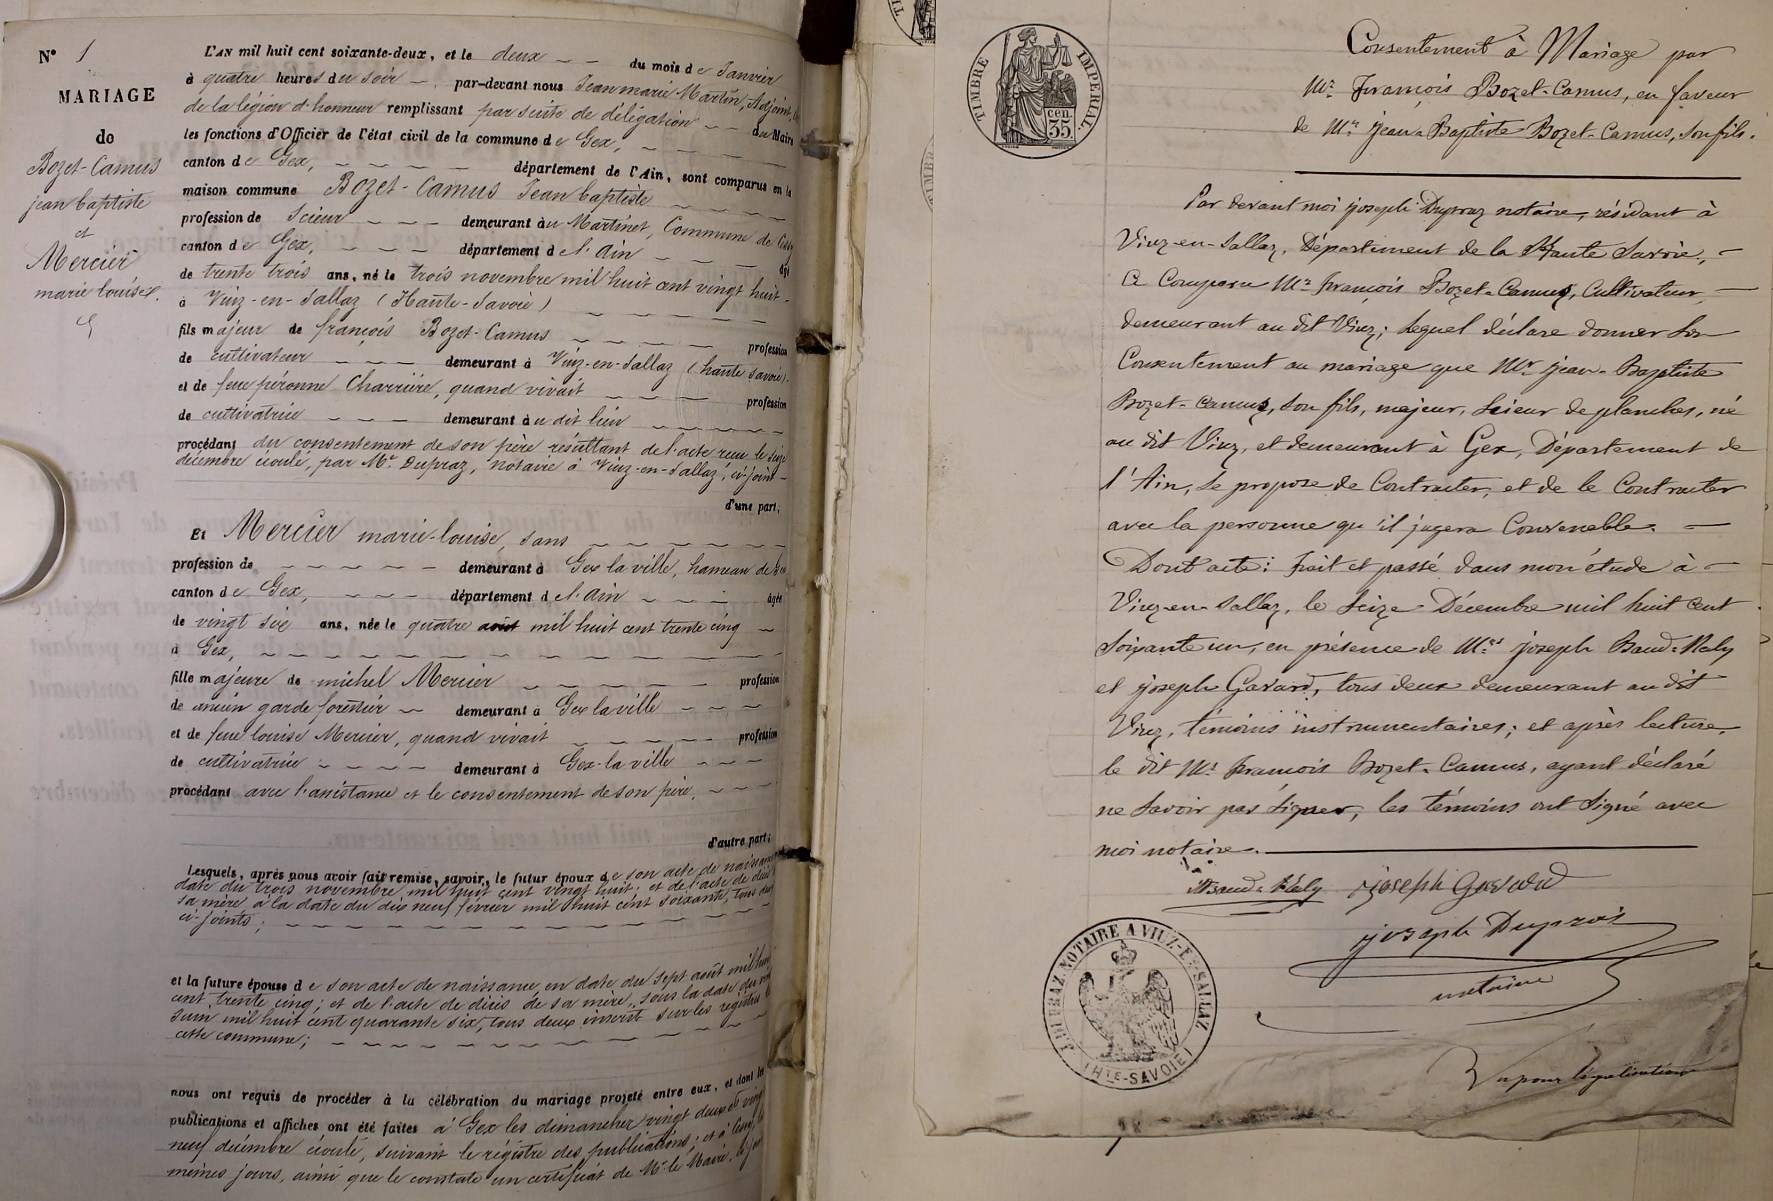 N° 1
MARIAGE
de
Bozet-Camus
jean baptiste
et
Mercier
marie louise.
L'AN mil huit cent soixante-deux, et le deux du mois de Janvier
à quatre heures du soir par-devant nous Jean marie Martin, Adjoint,
de la légion d'honneur remplissant par suite de délégation du Maire
les fonctions d'Officier de l'état civil de la commune de Gex,
canton de Gex, département de l'Ain, sont comparus en la
maison commune Bozet-Camus Jean baptiste
profession de Scieur demeurant au Martinet, Commune de
canton de Gex, département de l'Ain âgé
de trente trois ans, né le trois novembre mil huit cent vingt huit
à Viuz-en-Sallaz (Haute-Savoie)
fils majeur de françois Bozet-Camus profession
de cultivateur demeurant à Viuz-en-Sallaz (haute Savoie).
et de feue péronne Charrière, quand vivait profession
de cultivatrice demeurant au dit lieu
procédant du consentement de son père résultant de l'acte reçu le seize
décembre écoulé, par Me. Dupraz, notaire à Viuz-en-Sallaz, ci-joint
d'une part,
Et Mercier marie-louise, sans
profession de demeurant à Gex la ville, hameau de Gex
canton de Gex, département de l'Ain âgée
de vingt six ans, née le quatre août mil huit cent trente cinq
à Gex,
fille majeure de michel Mercier profession
de ancien garde forestier demeurant à Gex la ville
et de feue louise Mercier, quand vivait profession
de cultivatrice demeurant à Gex-la-ville
procédant avec l'assistance et le consentement de son père,
d'autre part;
Lesquels, après nous avoir fait remise, savoir, le futur époux de son acte de naissance
date du trois novembre mil huit cent vingt huit; et de l'acte de décès
sa mère à la date du dix neuf février mil huit cent soixante, tous deux
ci-joints;
et la future épouse de son acte de naissance, en date du sept août mil huit
cent trente cinq; et de l'acte de décès de sa mère, sous la date du
Juin mil huit cent quarante six, tous deux inscrit sur les registres
cette commune;
nous ont requis de procéder à la célébration du mariage projeté entre eux, et dont les
publications et affiches ont été faites à Gex les dimanches vingt deux et vingt
neuf décembre écoulé, suivant le régistre des publications; et à
mêmes jours, ainsi que le constate un certificat de Mr. le Maire
TIMBRE IMPERIAL.
35 cen.
Consentement à Mariage par
Mr. François Bozet-Camus, en faveur
de Mr. Jean-Baptiste Bozet-Camus, son fils.
Par devant moi joseph Dupraz notaire, résidant à
Viuz-en-Sallaz, Département de la Haute Savoie,
a Comparu Mr. françois Bozet-Camus, Cultivateur,
demeurant au dit Viuz; lequel déclare donner Son
Consentement au mariage que Mr. jean-Baptiste
Bozet-Camus, son fils, majeur, Scieur de planches, né
au dit Viuz, et demeurant à Gex, Département de
l'Ain, se propose de Contracter, et de le Contracter
avec la personne qu'il jugera Convenable.
Dont acte: fait et passé dans mon étude à
Viuz-en-Sallaz, le Seize Décembre mil huit cent
Soixante un, en présence de Mrs joseph Baud-Naly
et joseph Gavard, tous deux demeurant au dit
Viuz, témoins instrumentaires; et après lecture,
le dit Mr. françois Bozet-Camus, ayant déclaré
ne Savoir pas Signer, les témoins ont Signé avec
moi notaire.
Baud-Naly joseph Gavard
joseph Dupraz
notaire
J. DUPRAZ NOTAIRE A VIUZ-EN-SALLAZ
(HTE-SAVOIE)
Vu pour légalisation